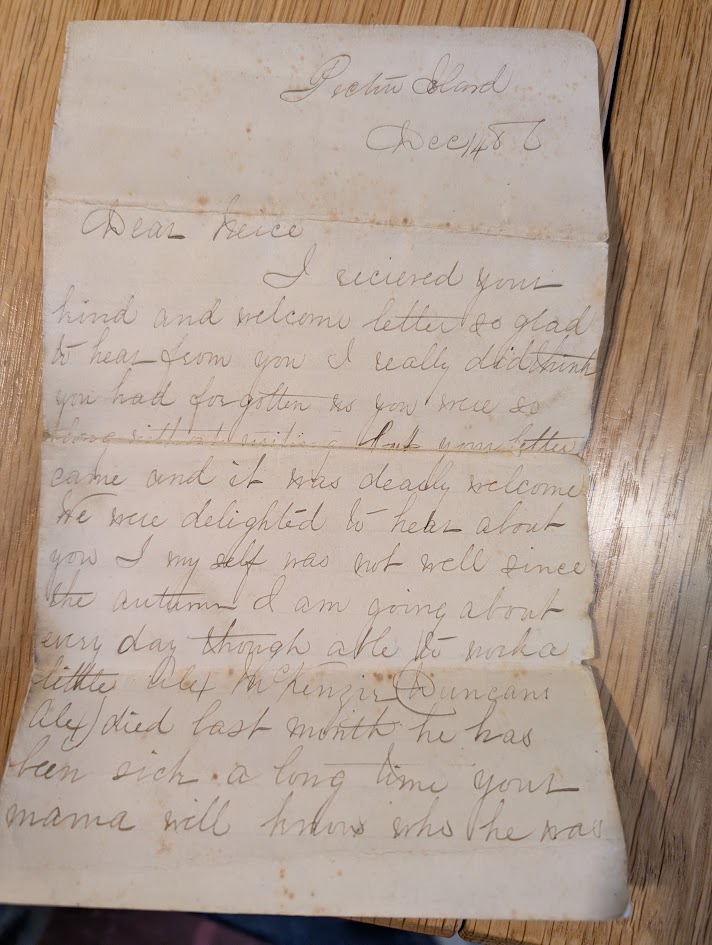 Pictou Island
Dec 14 86
Dear Neice
I recieved your
kind and welcome letter so glad
to hear from you I really did think
you had forgotten us you were so
long without writing but your letter
came and it was dearly welcome
We were delighted to hear about
you I my self was not well since
the autumn I am going about
every day though able to work a
little Alex McKenzie (Duncans
Alex) died last month he has
been sick a long time your
mama will know who he was